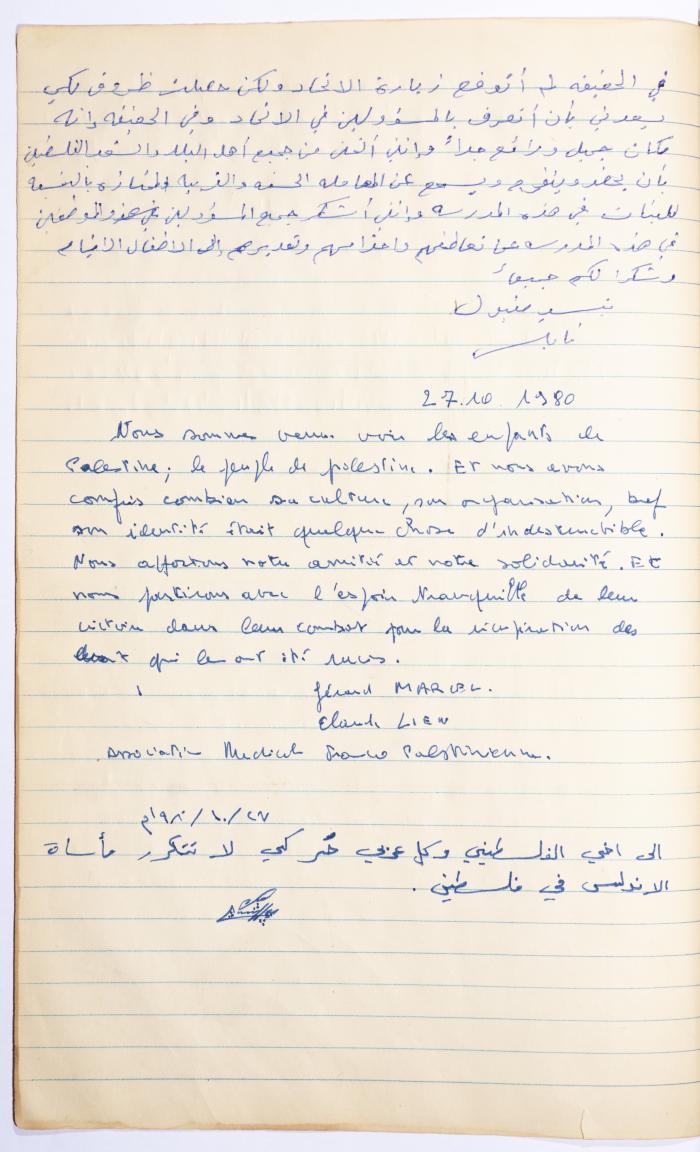 في الحقيقه لم أتوقع زيارة الاتحاد ولكن حصلت ظروف لكي
يسعدني بأن أتعرف بالمسؤولين في الاتحاد وفي الحقيقه إنه
مكان جميل ورائع جداً وإنني أتمنى من جميع أهل البلد والشعب الفلسطيني
بأن يحضر ويتفرج ويسمع عن المعامله الحسنه والتربيه الممتازه بالنسبة
للبنات في هذه المدرسه وإنني أشكر جميع المسؤولين والموظفين
في هذه المدرسه عن تعاطفهم واحترامهم وتقديرهم إلى الاطفال الأيتام
وشكرا لكم جميعاً
نابلس
27.10.1980
Nous sommes venus voir les enfants de
Palestine, le peuple de palestine. Et nous avons
compris combien sa culture, son organisation, bref
son identité était quelque chose d'indestructible.
Nous apportons notre amitié et notre solidarité. Et
nous partirons avec l'espoir tranquille de leur
victoire dans leur combat pour la récupération des
qui leur ont été
Gérard MARCEL.
Claude LIEN
Association Medicale Franco Palestinienne.
٢٧/١٠/١٩٨٠م
الى اخي الفلسطيني وكل عربي حُر كي لا تتكرر مأساة
الاندلس في فلسطين.